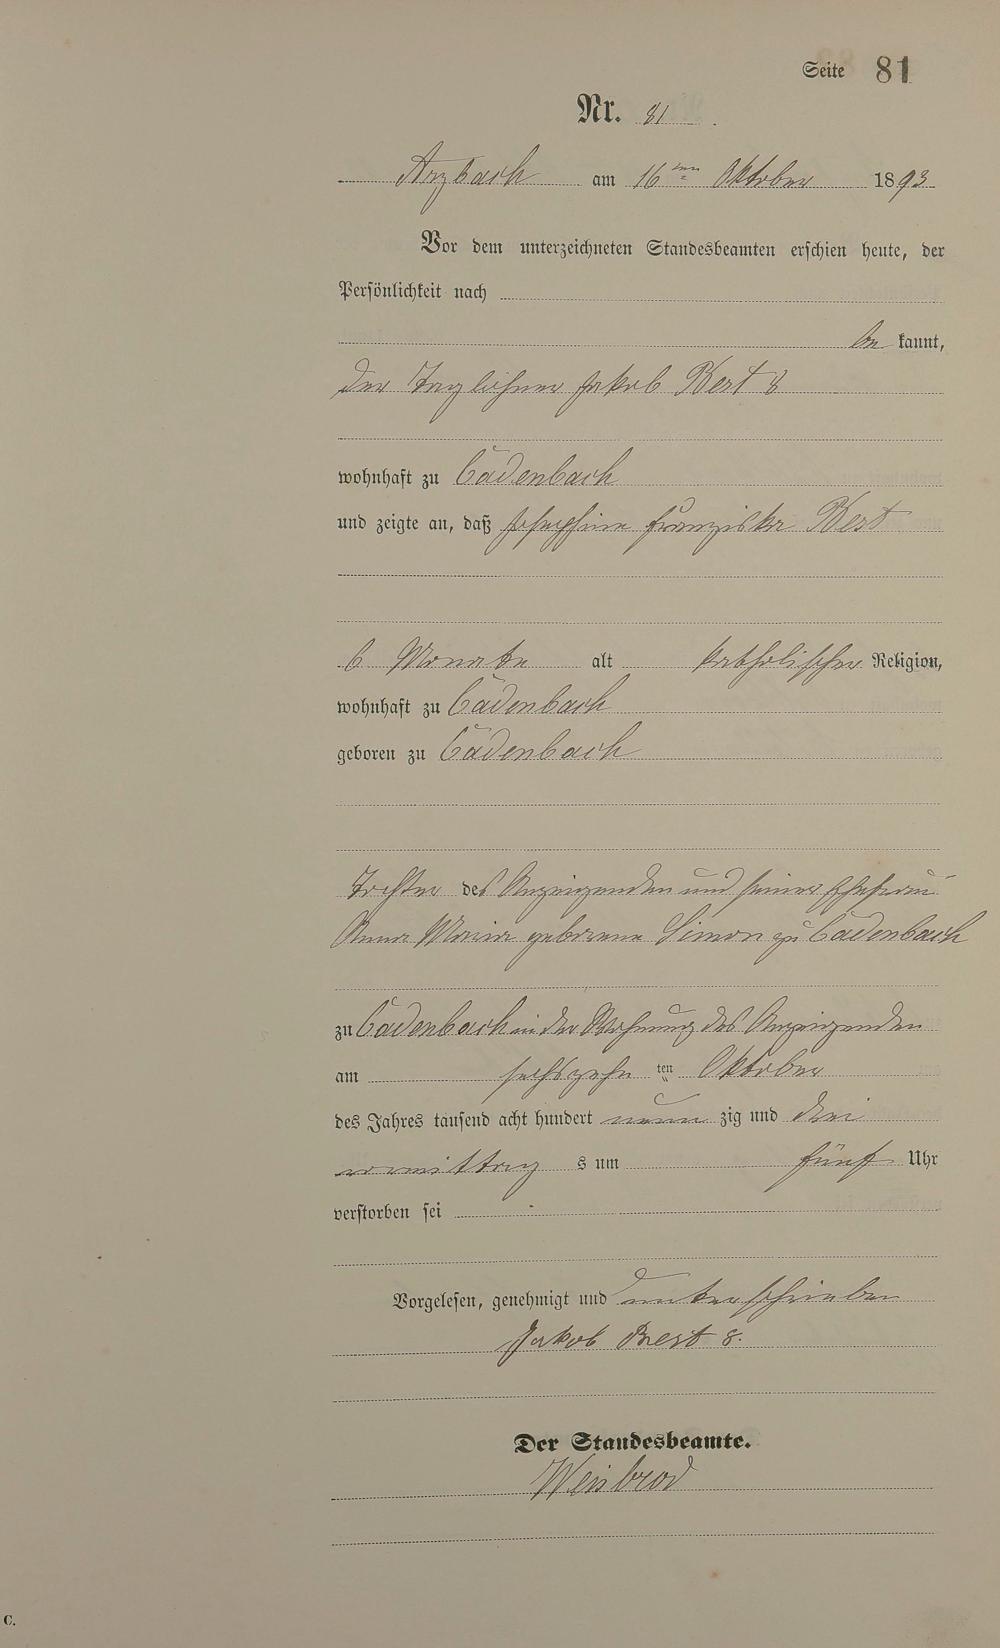 Seite 81
Nr. 81
Arzbach am 16ten Oktober 1893
Vor dem unterzeichneten Standesbeamten erschien heute, der
Persönlichkeit nach
be kannt,
der Taglöhner Jakob Best 8
wohnhaft zu Cadenbach
und zeigte an, daß Josephine Franziska Best
6 Monate alt katholischer Religion,
wohnhaft zu Cadenbach
geboren zu Cadenbach
Tochter des Anzeigenden und seiner Ehefrau
Anna Maria geborene Simon zu Cadenbach
zu Cadenbach in der Wohnung des Anzeigenden
am sechszehn ten Oktober
des Jahres tausend acht hundert neun zig und drei
vormittag s um fünf Uhr
verstorben sei
Vorgelesen, genehmigt und unterschrieben
Jakob Best 8.
Der Standesbeamte.
Weisbrod
C.